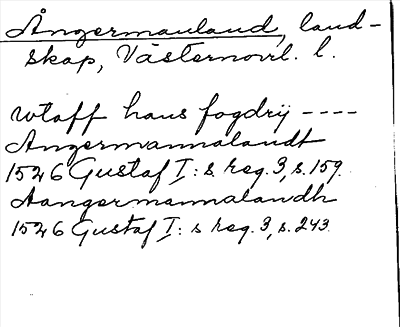 Ångermanland, land-
skap, Västernorrl. l.
wtaff hans fogdrij ----
Angermannalandt
1526 Gustaf I:s reg. 3, s. 159.
Aangermannalandh
1526 Gustaf I: s reg. 3, s. 243.